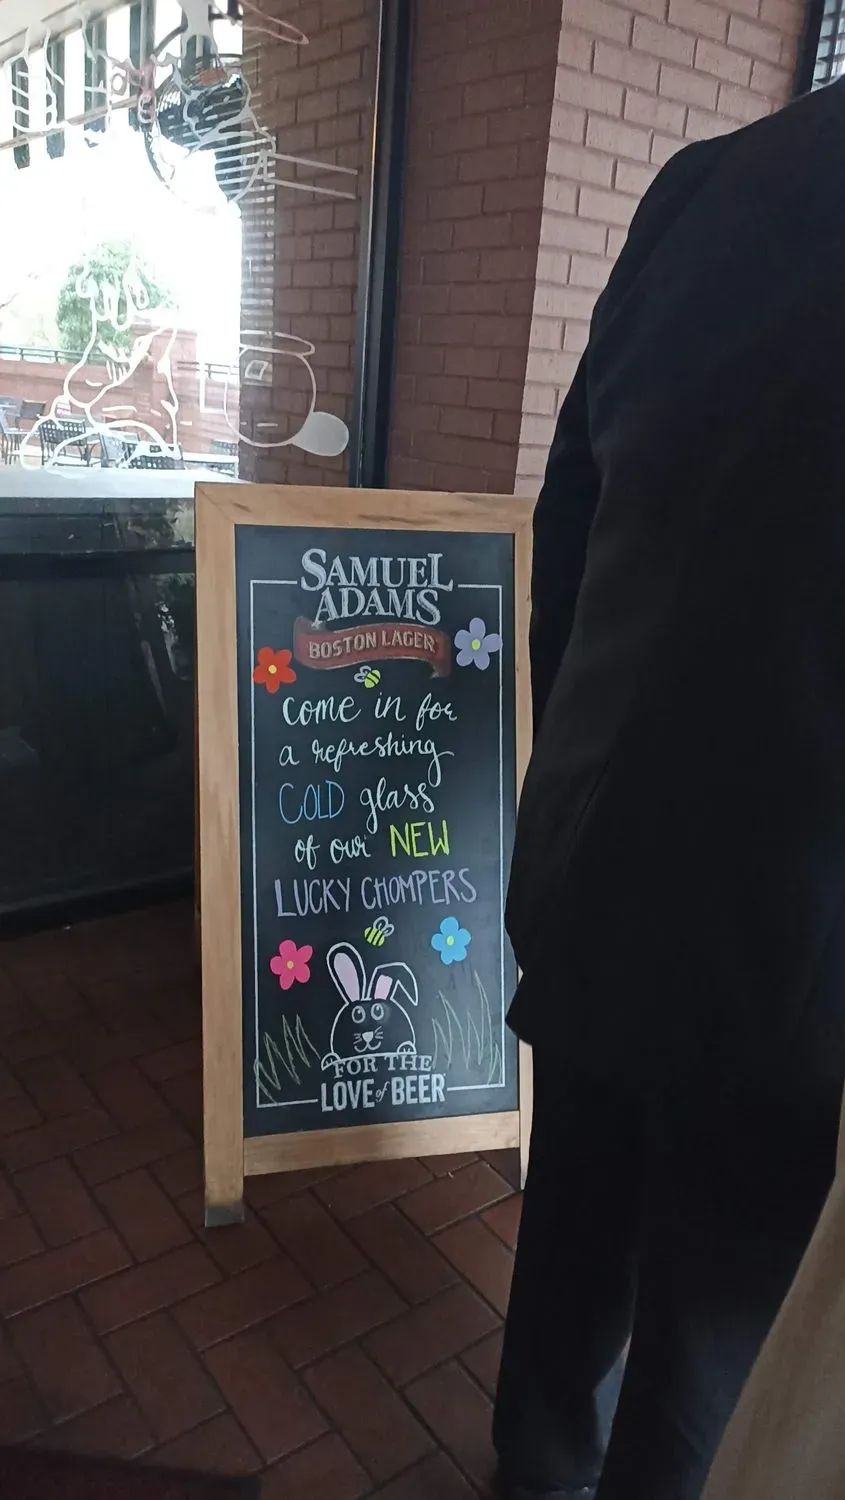 SAMUEL
ADAMS
BOSTON LAGER
come in for
a refreshing
COLD glass
of our NEW
LUCKY CHOMPERS
FOR THE
LOVE of BEER